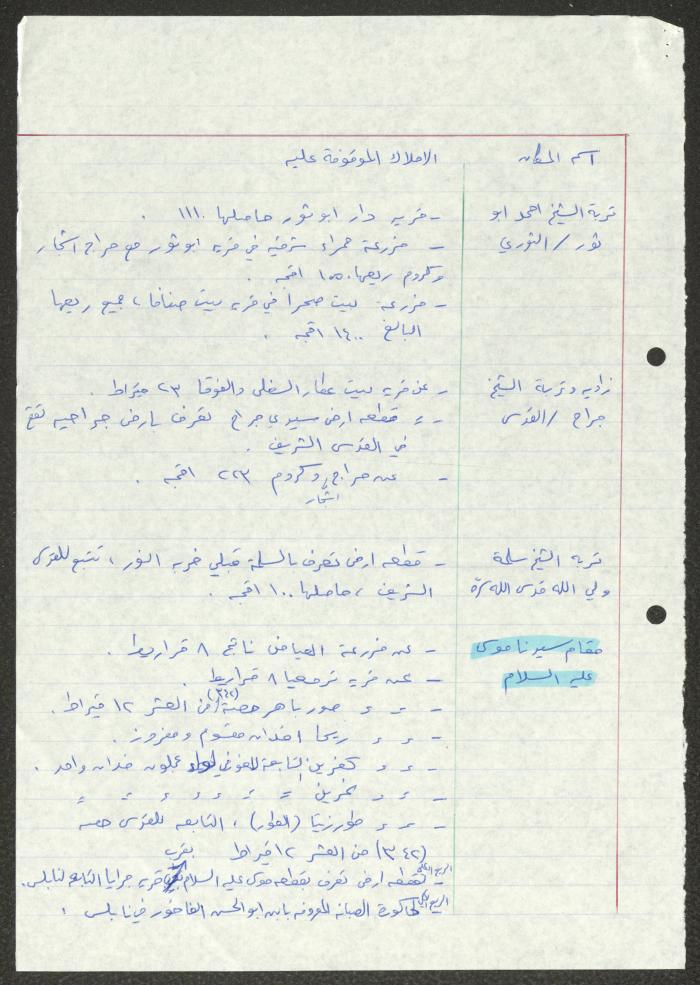 اسم المكان
الاملاك الموقوفة عليه
تربة الشيخ احمد ابو
ثور / الثوري
- قريه دار ابو ثور حاصلها ١١١٠ .
- مزرعة حمراء شرقيه في قريه ابو ثور مع حراج اشجار
وكروم ريعها اقجه .
- مزرعة بيت صحرا في قريه بيت صفافا ، جميع ريعها
البالغ ١٤٠٠ اقجه .
زاويه وتربة الشيخ
جراح / القدس
- عن قريه بيت عطار السفلى والفوقا ٢٣ قيراط .
- قطعه ارض سيدي جراح تعرف بارض جراحيه تقع
في القدس الشريف .
- عن حراج وكروم ٢٢٣ اقجه .
اشجار
تربه الشيخ سلمة
ولي الله قدس الله سرّه
- قطعه ارض تعرف بالسلمة قبلي خربه النور ، تتبع للقدس
الشريف ، حاصلها ١٠٠ اقجه .
مقام سيدنا موسى
عليه السلام
- عن مزرعة ناتج ٨ قراريط .
- عن قريه ترمعيا ٨ قراريط .
- صور باهر حصة (٣٤٢) من العشر ١٢ قيراط .
- ريحا فدان مقسوم ومفروز .
- كفرين التابعة للغور لواء عجلون فدان واحد .
- نمرين
- طورزيتا (الطور) ، التابعه للقدس حصه
(٣٤٢) من العشر ١٢ قيراط بقرب
- قطعه ارض تعرف بقطعه موسى عليه السلام قريه التابعه لنابلس .
- حاكورة الصبانه المعروفه بابن ابو الحسن الفاخور في نابلس .